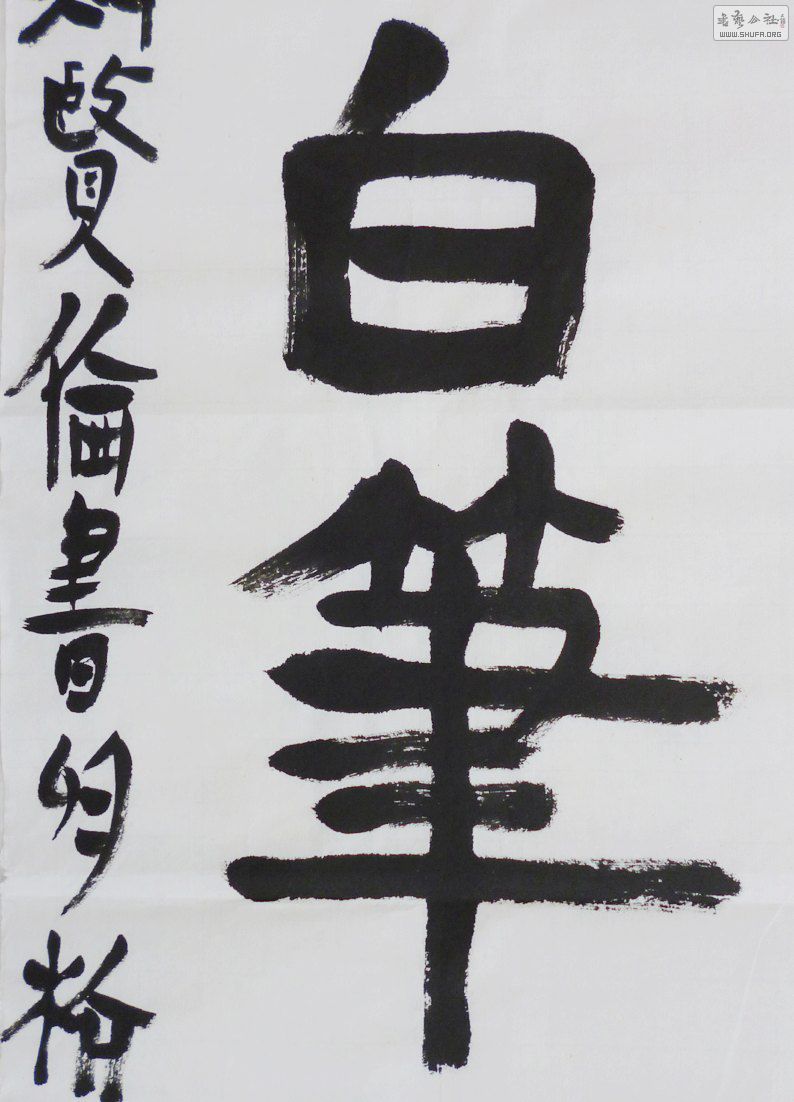 白筆
賢倫書
書藝公社
WWW.SHUFA.ORG